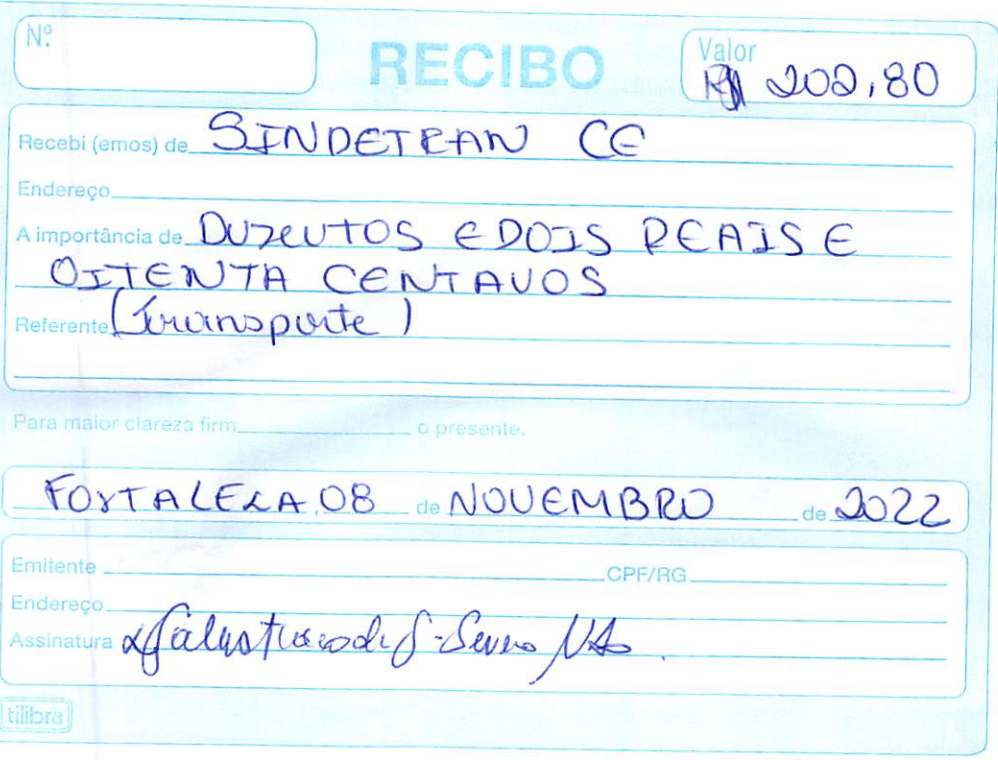 Nº
RECIBO
Valor
R$ 202,80
Recebi (emos) de SINDETRAN CE
Endereço
A importância de DUZENTOS E DOIS REAIS E
OITENTA CENTAVOS
Referente (Transporte)
Para maior clareza firm o presente.
FORTALEZA, 08 de NOVEMBRO de 2022
Emitente CPF/RG
Endereço
Assinatura
tilibra